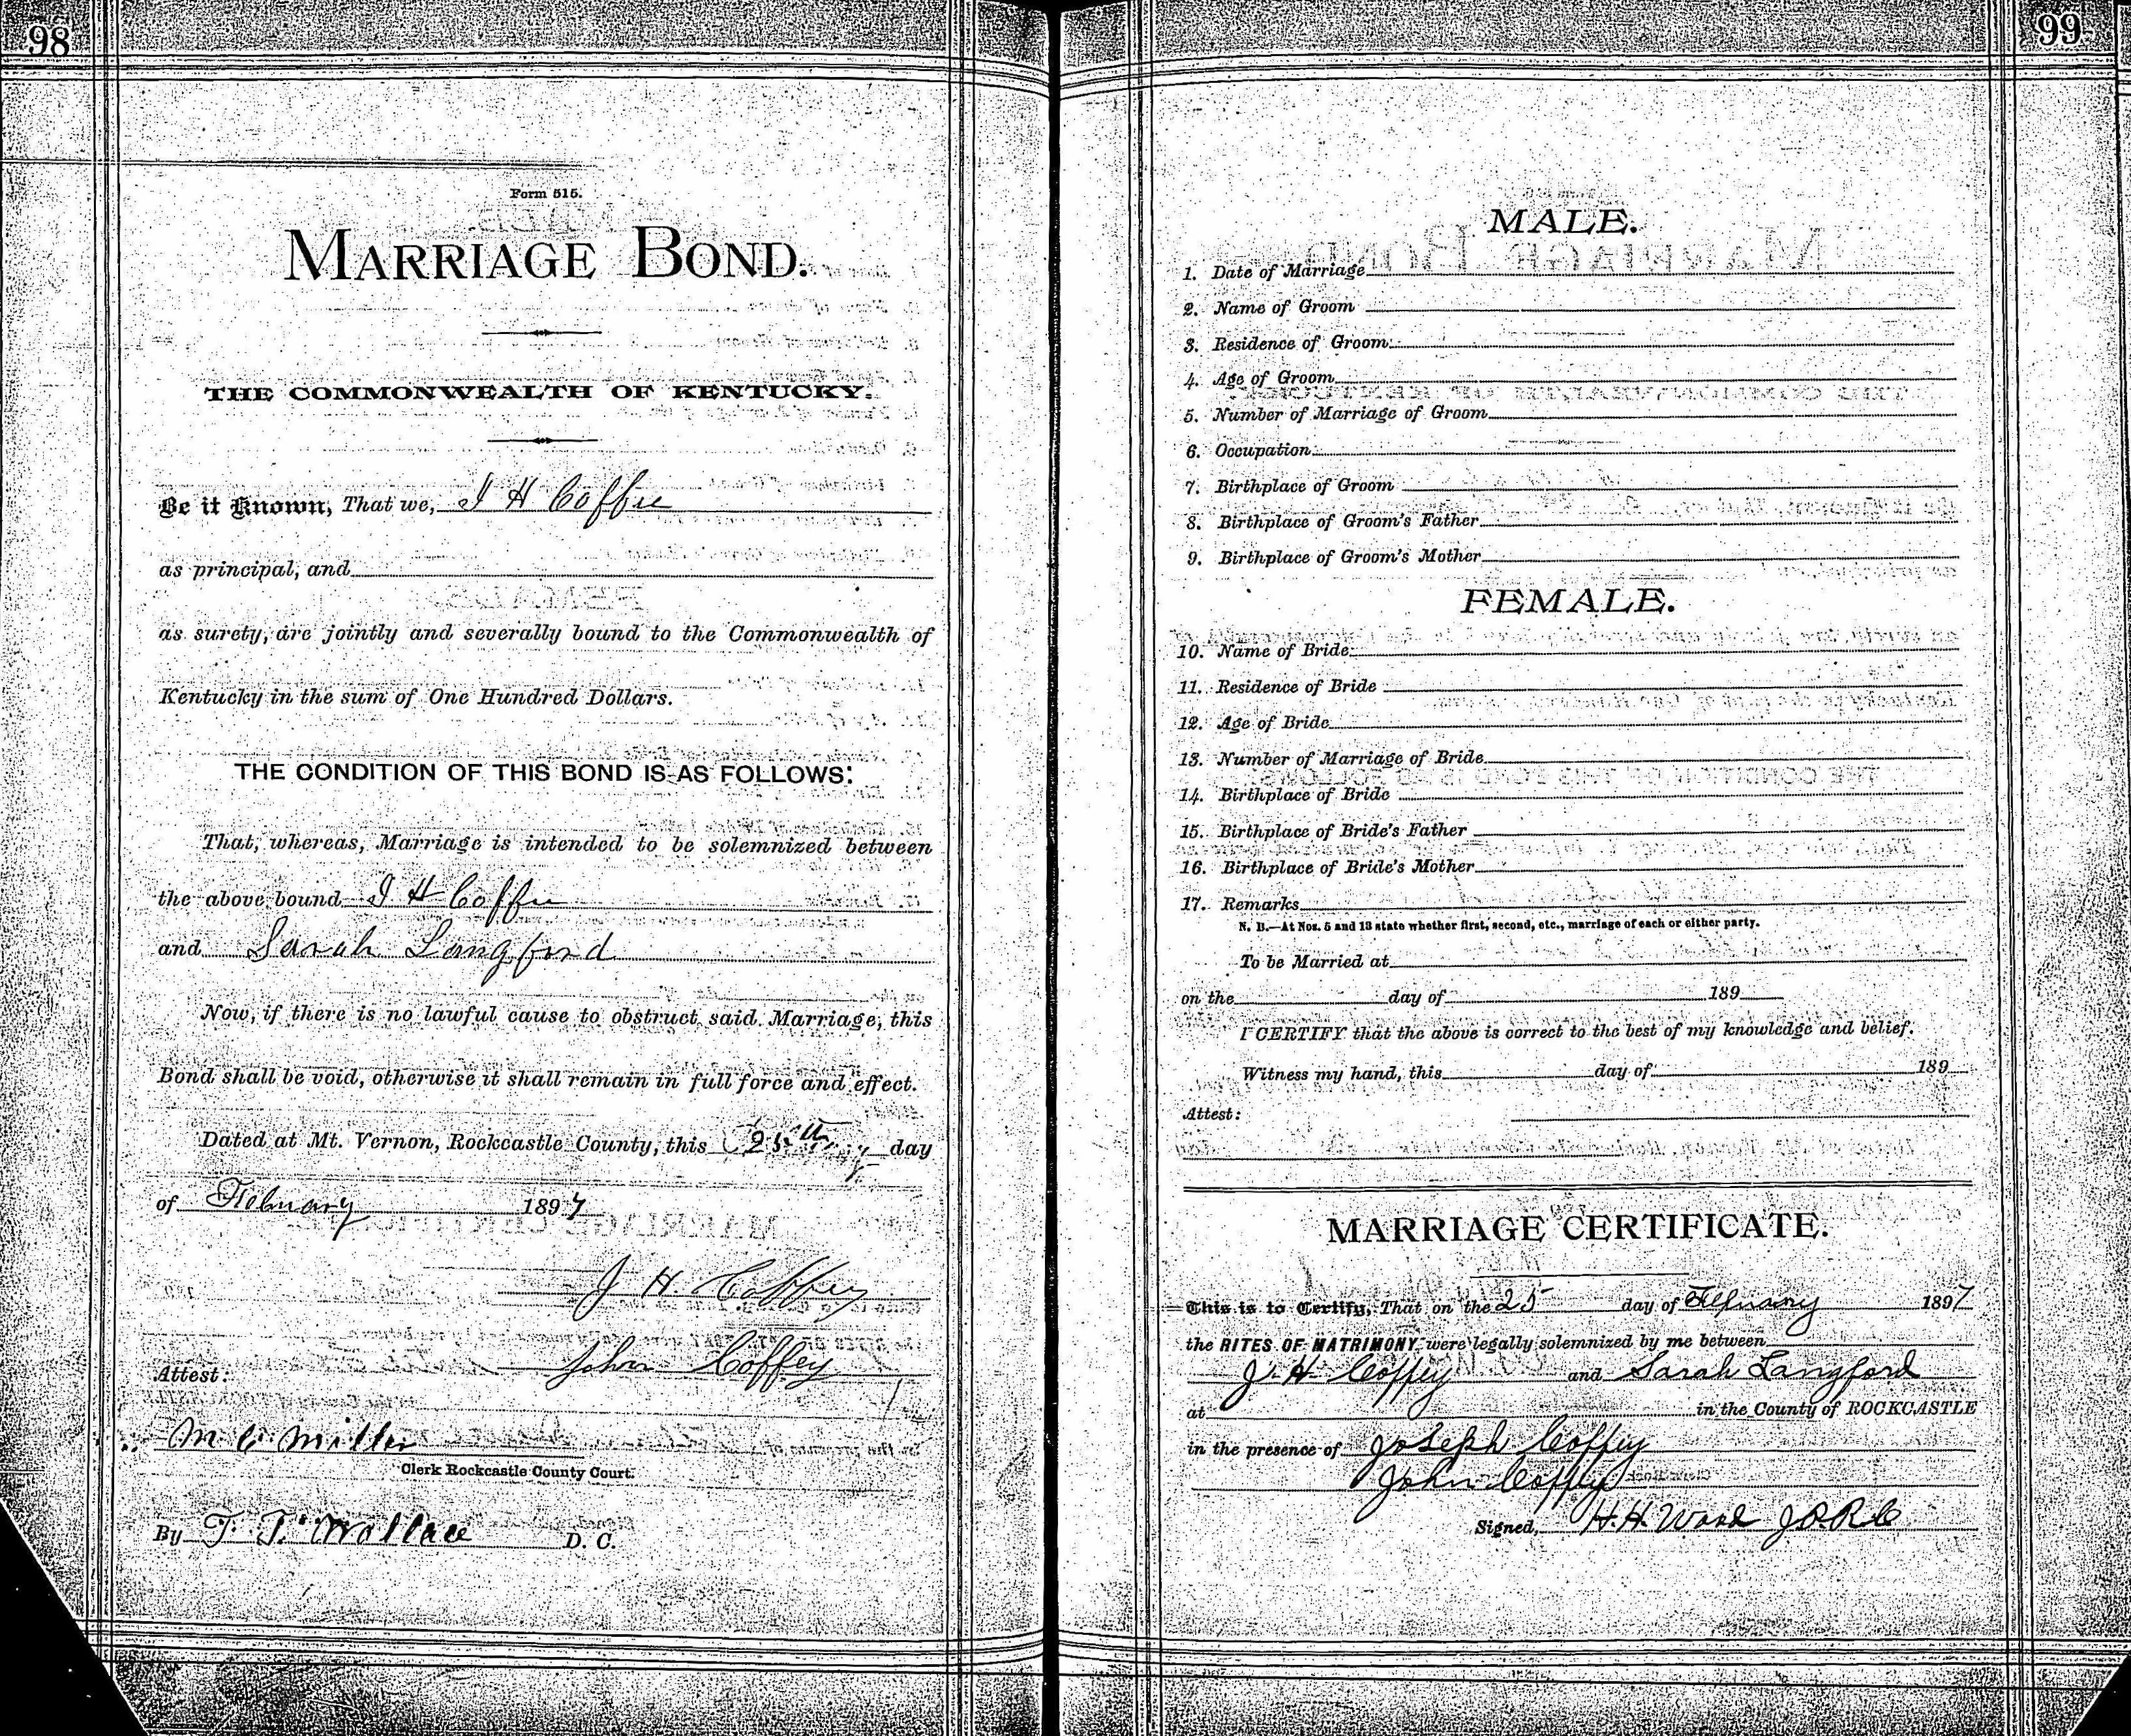 98
Form 515.
MARRIAGE BOND.
THE COMMONWEALTH OF KENTUCKY.
Be it Known, That we, J H Coffee
as principal, and
as surety, are jointly and severally bound to the Commonwealth of
Kentucky in the sum of One Hundred Dollars.
THE CONDITION OF THIS BOND IS AS FOLLOWS:
That, whereas, Marriage is intended to be solemnized between
the above bound J H Coffee
and Sarah Langford
Now, if there is no lawful cause to obstruct said Marriage, this
Bond shall be void, otherwise it shall remain in full force and effect.
Dated at Mt. Vernon, Rockcastle County, this 25th day
of February 1897
J H. Coffey
John Coffey
Attest:
M C Miller
Clerk Rockcastle County Court.
By T. J. Wallace D. C.
99
MALE.
1. Date of Marriage
2. Name of Groom
3. Residence of Groom
4. Age of Groom
5. Number of Marriage of Groom
6. Occupation
7. Birthplace of Groom
8. Birthplace of Groom's Father
9. Birthplace of Groom's Mother
FEMALE.
10. Name of Bride
11. Residence of Bride
12. Age of Bride
13. Number of Marriage of Bride
14. Birthplace of Bride
15. Birthplace of Bride's Father
16. Birthplace of Bride's Mother
17. Remarks
N. B.—At Nos. 5 and 13 state whether first, second, etc., marriage of each or either party.
To be Married at
on the day of 189
I CERTIFY that the above is correct to the best of my knowledge and belief.
Witness my hand, this day of 189
Attest:
MARRIAGE CERTIFICATE.
This is to Certify, That on the 25 day of February 1897
the RITES OF MATRIMONY were legally solemnized by me between
J. H. Coffey and Sarah Langford
at in the County of ROCKCASTLE
in the presence of Joseph Coffey
John Coffey
Signed, H. H. Wood J.P.R.C